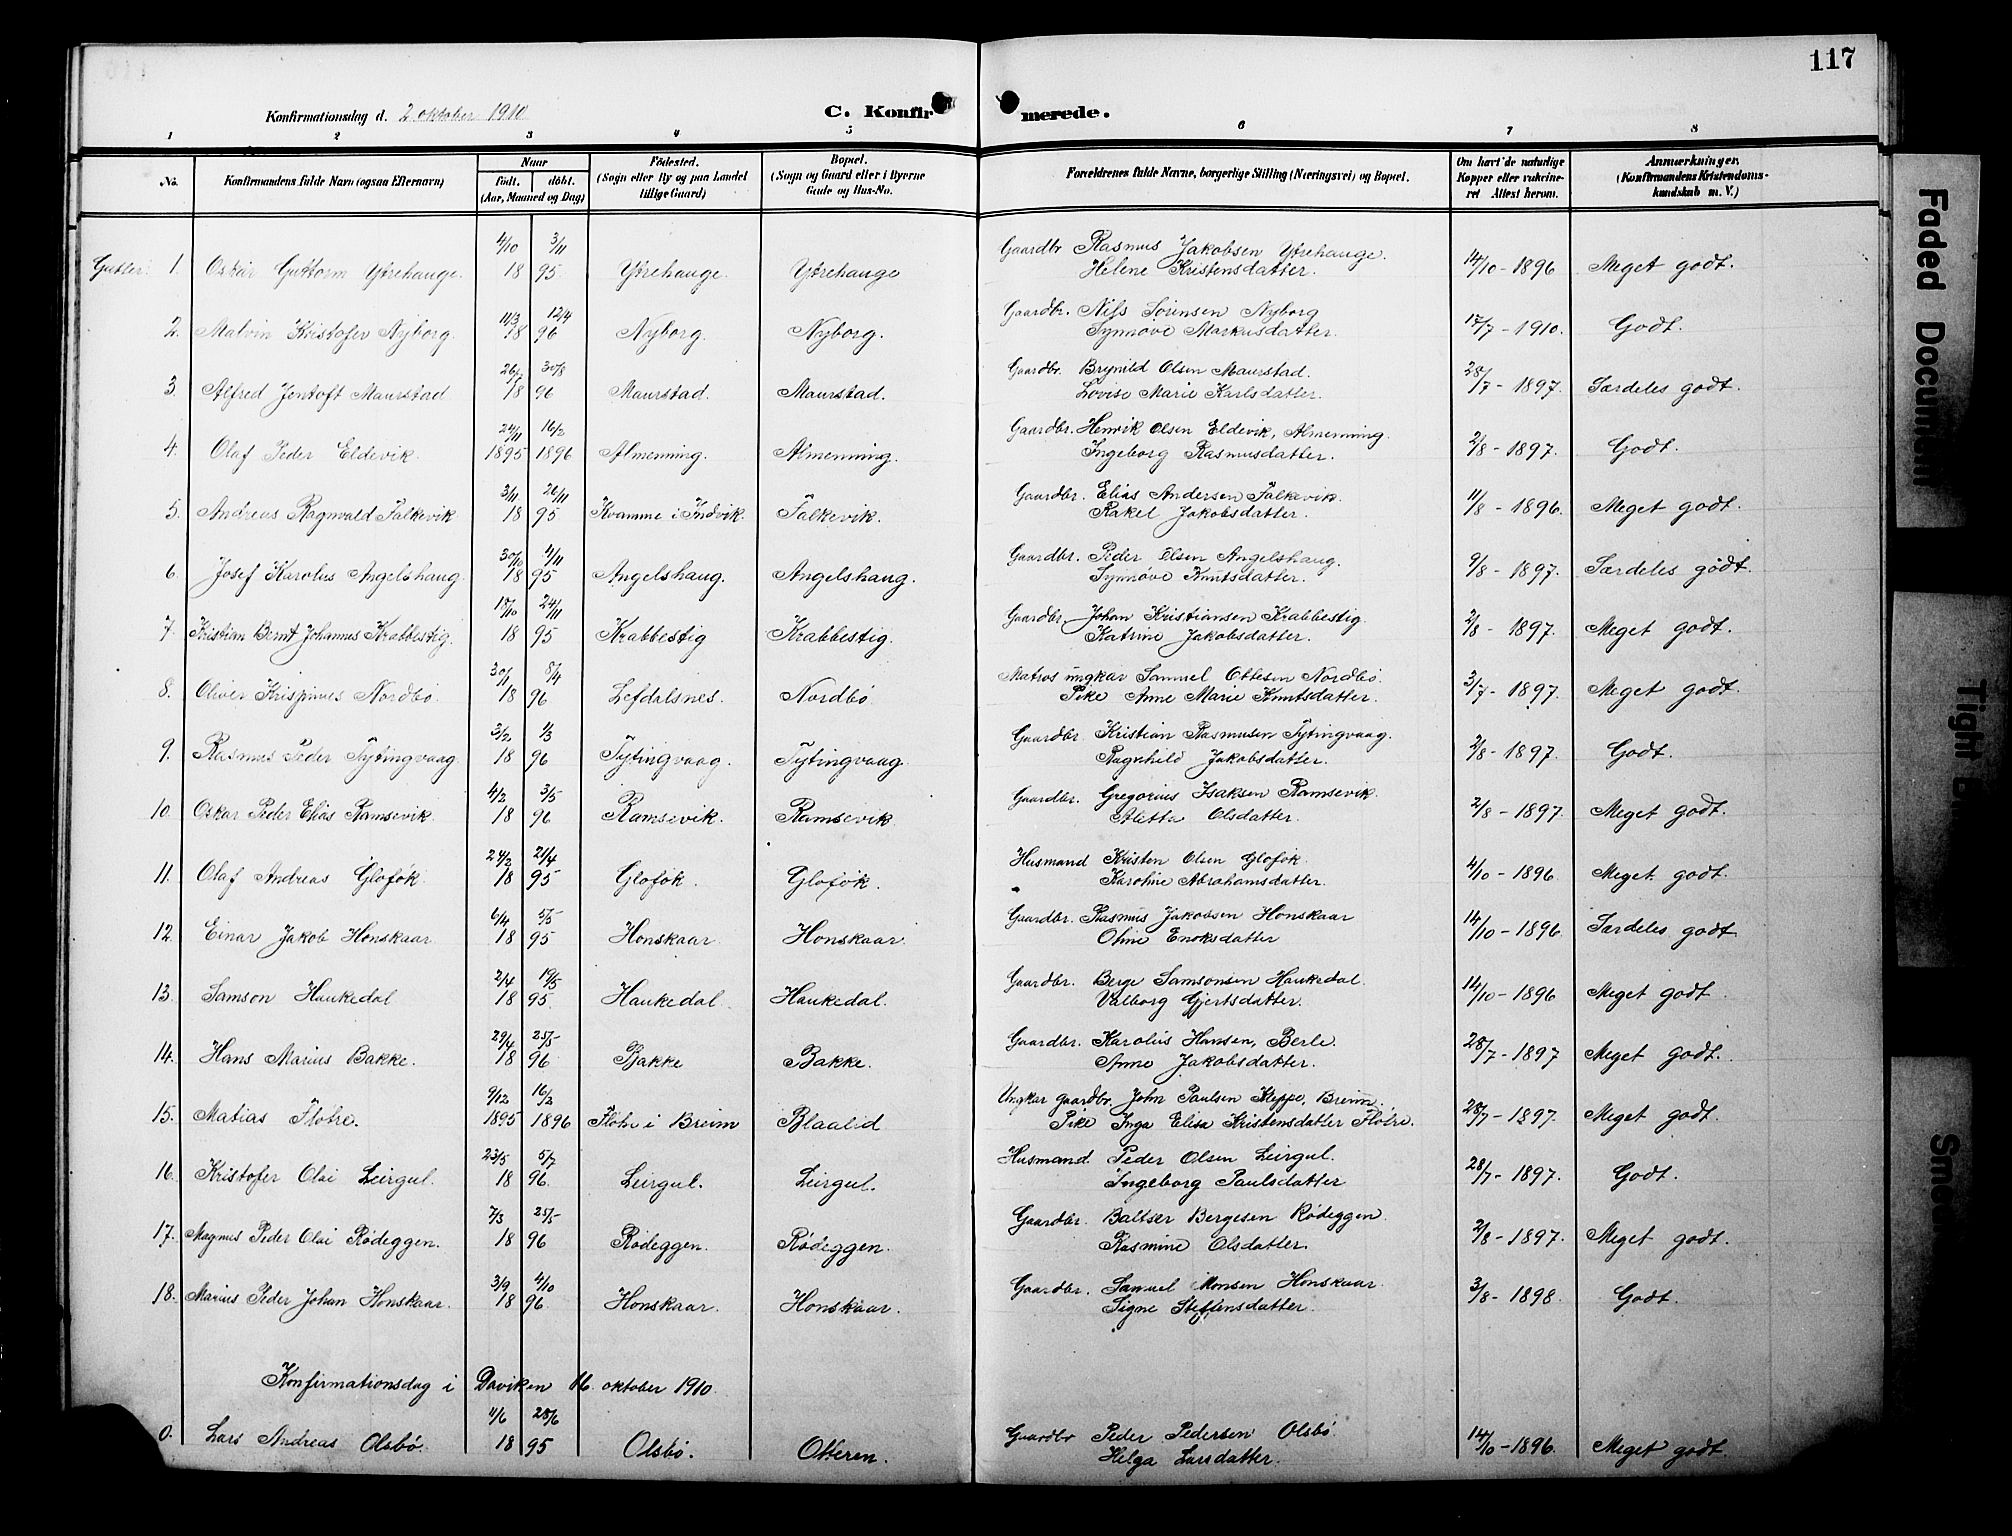 117
Konfirmationsdag d. 2 oktober 1910
C. Konfirmerede.
1 2 3 4 5 6 7 8
No. Konfirmandens fulde Navn (ogsaa Efternavn) Naar født. døbt. (Aar, Maaned og Dag) Fødested. (Sogn eller By og paa Landet tillige Gaard) Bopæl. (Sogn og Gaard eller i Byerne Gade og Hus-No. Forældrenes fulde Navne, borgerlige Stilling (Næringsvei) og Bopæl. Om havt de naturlige Kopper eller vakcineret Attest herom. Anmærkninger. (Konfirmandens Kristendomskundskab m. V.)
Gutter. 1. Oskar Guttorm Ytrehauge. 4/10 3/11 18 95 Ytrehauge. Ytrehauge Gaardbr Rasmus Jakobsen Ytrehauge. 14/10 - 1896 Meget godt.
Helene Kristensdatter.
2. Malvin Kristofer Nyborg. 11/3 12/4 18 96 Nyborg. Nyborg. Gaardbr. Nils Sørensen Nyborg 17/7 - 1910. Godt.
Synnøve Markusdatter.
3. Alfred Jentoft Maurstad 26/7 30/8 18 96 Maurstad. Maurstad. Gaardbr. Brynild Olsen Maurstad. 28/7 - 1897. Særdeles godt.
Lovise Marie Karlsdatter.
4. Olaf Peder Eldevik. 24/11 1895 16/2 1896 Almenning. Almenning. Gaardbr. Henrik Olsen Eldevik, Almenning. 2/8 - 1897. Godt.
Ingeborg Rasmusdatter.
5. Andreas Ragnvald Falkevik 3/11 26/11 18 95 Kvamme i Indvik. Falkevik. Gaardbr. Elias Andersen Falkevik. 11/8 - 1896. Meget godt.
Rakel Jakobsdatter.
6. Josef Karolus Angelshaug. 30/10 4/11 18 95 Angelshaug. Angelshaug. Gaardbr. Peder Olsen Angelshaug. 9/8 - 1897. Særdeles godt.
Synnøve Knutsdatter.
7. Kristian Bernt Johannes Krabbestig. 18/10 24/11 18 95 Krabbestig Krabbestig. Gaardbr. Johan Kristiansen Krabbestig 2/8 - 1897. Meget godt.
Katrine Jakobsdatter.
8. Oliver Krispinus Nordbø. 30/1 8/4 18 96 Lefdalsnes. Nordbø Matros ungkar Samuel Ottesen Nordbø. 3/7 - 1897. Meget godt.
Pike Anne Marie Knutsdatter.
9. Rasmus Peder Tytingvaag. 3/2 1/3 18 96 Tytingvaag. Tytingvaag. Gaardbr Kristian Rasmusen Tytingvaag. 2/8 - 1897. Godt.
Ragnhild Jakobsdatter.
10. Oskar Peder Elias Ramsevik. 4/2 3/5 18 96 Ramsevik. Ramsevik Gaardbr. Gregorius Isaksen Ramsevik. 2/8 - 1897. Meget godt.
Aletta Olsdatter.
11. Olaf Andreas Gloføk. 24/2 21/4 18 95 Gloføk. Gloføk. Husmand Kristen Olsen Gloføk. 4/10 - 1896. Meget godt.
Karoline Abrahamsdatter.
12. Einar Jakob Honskaar. 6/4 5/5 18 95 Honskaar. Honskaar. Gaardbr. Rasmus Jakobsen Honskaar 14/10 - 1896. Særdeles godt
Oline Enoksdatter
13. Samson Haukedal 2/4 19/5 18 95. Haukedal. Haukedal. Gaardbr. Berge Samsonsen Haukedal. 14/10 - 1896 Meget godt.
Valborg Gjertsdatter.
14. Hans Marius Bakke. 29/4 25/5 18 96 Bakke Bakke. Gaardbr. Karolius Hansen, Berle. 28/7 - 1897 Meget godt.
Anne Jakobsdatter.
15. Matias Fløtre. 9/12 1895 16/2 1896 Fløtre i Breim Blaalid Ungkar gaardbr. John Paulsen Kleppe, Breim. 28/7 - 1897. Meget godt.
Pike Inga Elisa Kristensdatter Fløtre.
16. Kristofer Olai Leirgul. 23/5 5/7 18 96. Leirgul. Leirgul. Husmand. Peder Olsen Leirgul. 28/7 - 1897. Godt.
Ingeborg Paulsdatter
17. Magnus Peder Olai Rødeggen. 7/3 25/5 18 96 Rødeggen. Rødeggen. Gaardbr. Baltser Bergesen Rødeggen. 2/8 - 1897. Meget godt.
Rasmine Olsdatter.
18. Marius Peder Johan Honskaar. 3/9 4/10 18 96. Honskaar. Honskaar. Gaardbr. Samuel Monsen Honskaar. 3/8 - 1898. Godt.
Signe Steffensdatter.
Konfirmationsdag i Daviken 16. oktober 1910.
0. Lars Andreas Olsbø. 4/6 28/6 18 95 Olsbø. Otteren. Gaardbr Peder Pedersen Olsbø 14/10 - 1896. Meget godt.
Helga Larsdatter.
Faded Document
Tight B